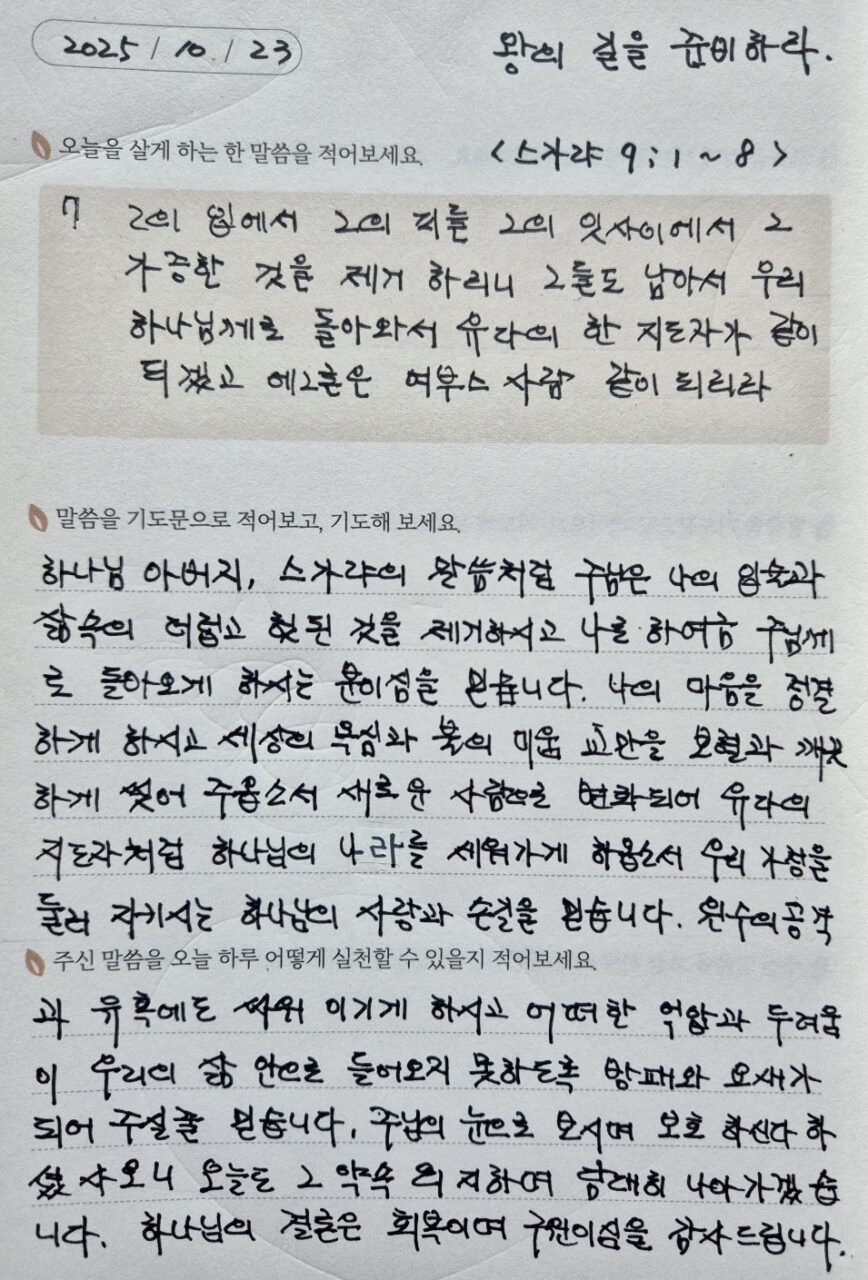 2025 / 10. / 23
왕의 길을 준비하라.
오늘을 살게 하는 한 말씀을 적어보세요.
<스가랴 9:1~8>
7 그의 입에서 그의 피를 그의 잇사이에서 그
가증한 것을 제거 하리니 그들도 남아서 우리
하나님께로 돌아와서 유다의 한 지도자가 같이
되겠고 에그론은 여부스 사람 같이 되리라
말씀을 기도문으로 적어보고, 기도해 보세요.
하나님 아버지, 스가랴의 말씀처럼 주님은 나의 입술과
삶속의 더럽고 헛된 것을 제거하시고 나로 하여금 주님께
로 돌아오게 하시는 분이심을 믿습니다. 나의 마음을 정결
하게 하시고 세상의 욕심과 불의 미움 교만을 보혈과 깨끗
하게 씻어 주옵소서 새로운 사람으로 변화되어 유다의
지도자처럼 하나님의 나라를 세워가게 하옵소서 우리 가정을
둘러 지키시는 하나님의 사랑과 손길을 믿습니다. 원수의 공격
주신 말씀을 오늘 하루 어떻게 실천할 수 있을지 적어보세요.
과 유혹에도 싸워 이기게 하시고 어떠한 억압과 두려움
이 우리의 삶 안으로 들어오지 못하도록 방패와 요새가
되어 주실줄 믿습니다. 주님의 눈으로 보시며 보호 하신다 하
셨사오니 오늘도 그 약속 의지하며 담대히 나아가겠습
니다. 하나님의 결론은 회복이며 구원이심을 감사드립니다.